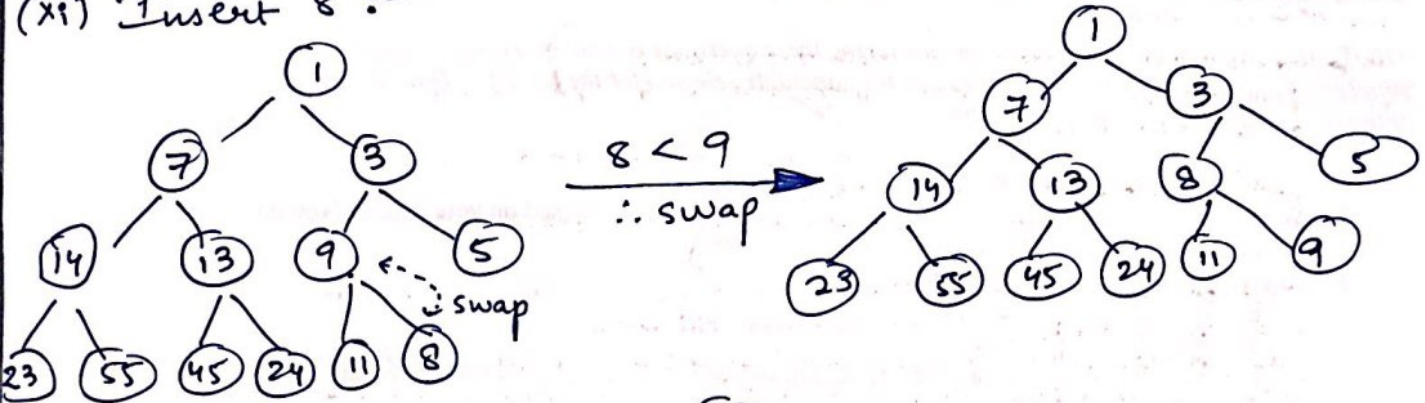 (xi) Insert 8 :-
1
7 3
14 13 9 5
swap
23 55 45 24 11 8
8 < 9
∴ swap
1
7 3
14 13 8 5
23 55 45 24 11 9